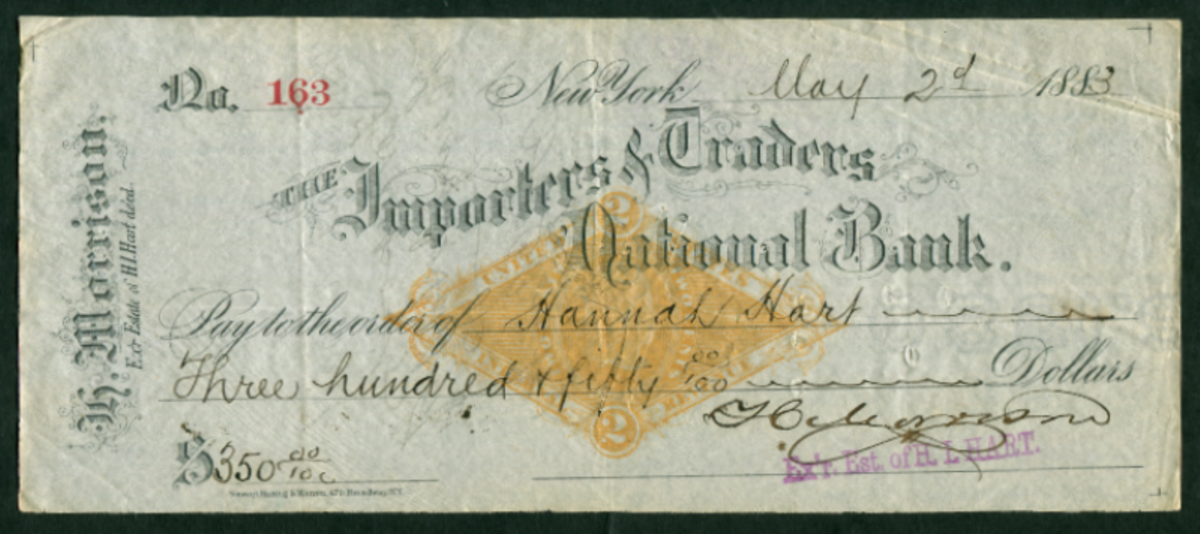 No. 163 New York May 2d 1883
THE Importers & Traders
National Bank.
Pay to the order of Hannah Hart
Three hundred & fifty 00/100 Dollars
H. Morrison
Ex'r. Est. of H. I. HART.
$350 00/100
Broadway, N.Y.
H. Morrison.
Exr Estate of H.I. Hart decd.
2
UNITED
2